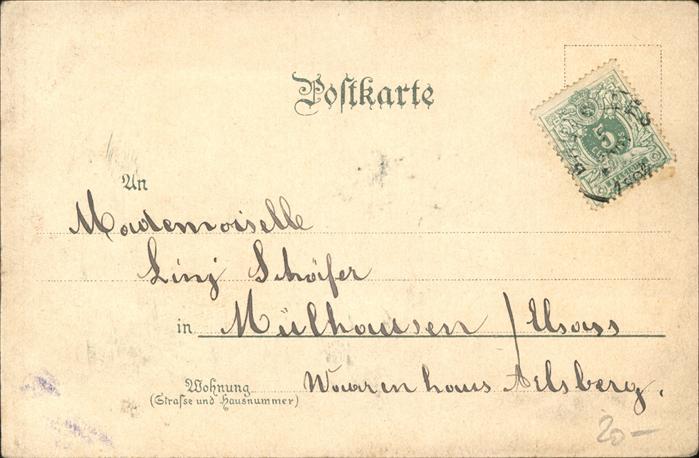 Postkarte
5
An
Mademoiselle
Linj Schäfer
in Mülhausen / Elsass
Wohnung Waarenhaus Aelsberg.
(Strasse und Hausnummer)
20-